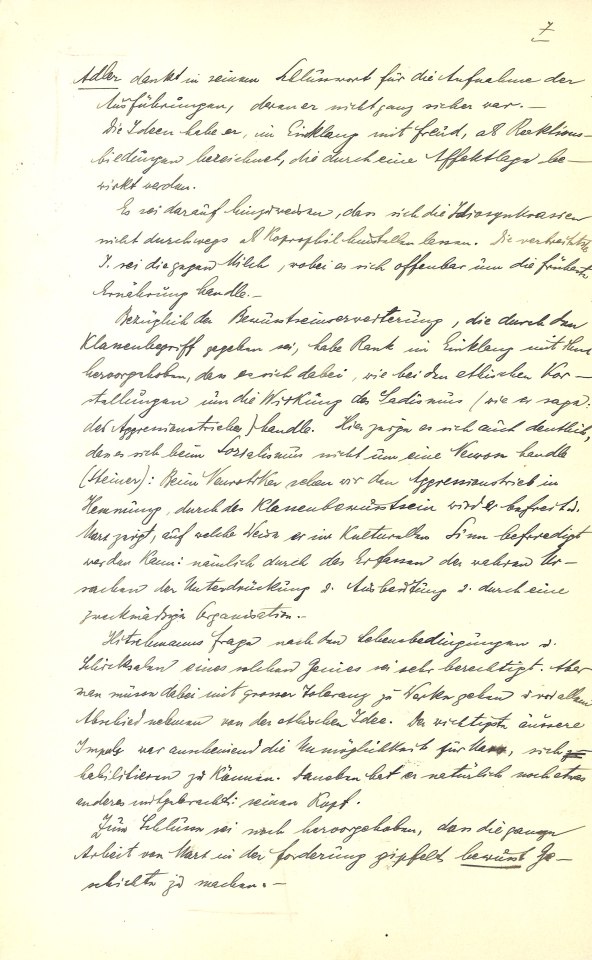 7
Adler dankt in seinem Schlusswort für die Aufnahme der
Ausführungen, deren er nicht ganz sicher war. —
Die Ideen habe er, im Einklang mit Freud, als Reaktions-
bildungen bezeichnet, die durch eine Affektlage be-
wirkt werden.
Es sei darauf hinzuweisen, dass sich die Idiosynkrasien
nicht durchwegs als Koprophil hinstellen lassen. Die verbreitetste
I. sei die gegen Milch, wobei es sich offenbar um die früheste
Ernährung handle. —
Bezüglich der Bewusstseinserweiterung, die durch den
Klassenbegriff gegeben sei, habe Rank im Einklang mit ihm
hervorgehoben, dass es sich dabei, wie bei den ethischen Vor-
stellungen um die Wirkung des Sadismus (wie er sage:
des Aggressionstriebes) handle. Hier zeige es sich auch deutlich,
dass es sich beim Sozialismus nicht um eine Neurose handle
(Steiner): Beim Neurotiker sehen wir den Aggressionstrieb in
Hemmung, durch das Klassenbewusstsein wird er befreit u.
Marx zeigt, auf welche Weise er im Kulturellen Sinn befriedigt
werden kann: nämlich durch das Erfassen der wahren Ur-
sachen der Unterdrückung u. Ausbeutung u. durch eine
zweckmässige Organisation. —
Hitschmanns Frage nach den Lebensbedingungen u.
Schicksalen eines solchen Genies sei sehr berechtigt. Aber
man müsse dabei mit grosser Toleranz zu Werke gehen u vor allem
Abschied nehmen von der ethischen Idee. Der wichtigste äussere
Impuls war anscheinend die Unmöglichkeit für Marx, sich
habilitieren zu können. Daneben hat er natürlich noch etwas
anderes mitgebracht: seinen Kopf.
Zum Schluss sei noch hervorgehoben, dass die ganze
Arbeit von Marx in der Forderung gipfelt bewusst Ge-
schichte zu machen. —